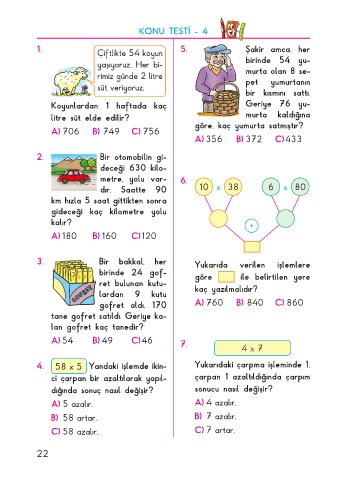 KONU TESTİ - 4
1.
Çiftlikte 54 koyun
yaşıyoruz. Her bi-
rimiz günde 2 litre
süt veriyoruz.
Koyunlardan 1 haftada kaç
litre süt elde edilir?
A) 706 B) 749 C) 756
2.
Bir otomobilin gi-
deceği 630 kilo-
metre, yolu var-
dır. Saatte 90
km hızla 5 saat gittikten sonra
gideceği kaç kilometre yolu
kalır?
A) 180 B) 160 C) 120
3.
Bir bakkal, her
birinde 24 gof-
ret bulunan kutu-
lardan 9 kutu
gofret aldı. 170
tane gofret satıldı. Geriye ka-
lan gofret kaç tanedir?
GOFRET
A) 54 B) 49 C) 46
4.
58 x 5 Yandaki işlemde ikin-
ci çarpan bir azaltılarak yapıl-
dığında sonuç nasıl değişir?
A) 5 azalır.
B) 58 artar.
C) 58 azalır.
5.
Şakir amca, her
birinde 54 yu-
murta olan 8 se-
pet yumurtanın
bir kısmını sattı.
Geriye 76 yu-
murta kaldığına
göre, kaç yumurta satmıştır?
A) 356 B) 372 C) 433
6.
10 x 38 6 x 80
+
Yukarıda verilen işlemlere
göre ile belirtilen yere
kaç yazılmalıdır?
A) 760 B) 840 C) 860
7.
4 x 7
Yukarıdaki çarpma işleminde 1.
çarpan 1 azaltıldığında çarpım
sonucu nasıl değişir?
A) 4 azalır.
B) 7 azalır.
C) 7 artar.
22